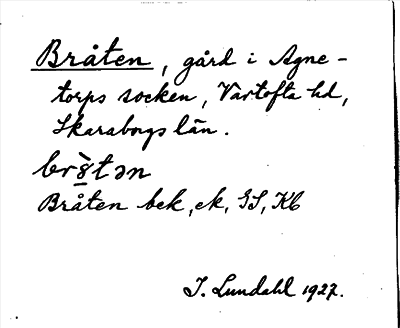 Bråten, gård i Agne-
torps socken, Vartofta hd,
Skaraborgs län.
brö̀tən
Bråten bek, ek, GS, Kb
I. Lundahl 1927.